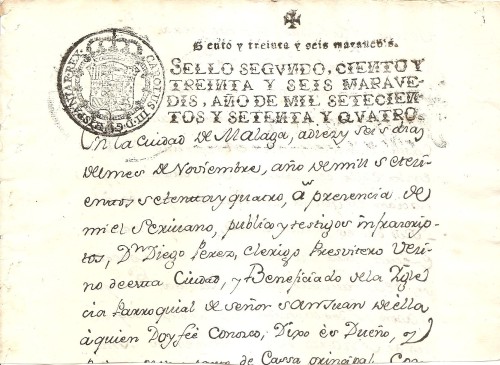 CAROLUS III D G HISPANIAR REX
Ciento y treinta y seis maravedis.
SELLO SEGVNDO, CIENTO Y
TREINTA Y SEIS MARAVE-
DIS, AÑO DE MIL SETECIEN-
TOS Y SETENTA Y QVATRO.
En la Ciudad de Malaga, a diez y seis dias
del mes de Noviembre, año de mill setezi-
entos setenta y quatro, ante presencia de
mi el Scrivano, publico y testigos infrascrip-
tos, Dn Diego Perez, Clerigo Presvitero Vezi-
no de esta Ciudad, y Beneficiado de la Ygle-
cia Parroquial de señor San Juan de ella
à quien Doy feé Conosco; Dixo es Dueño, y
de Cassa principal, Con